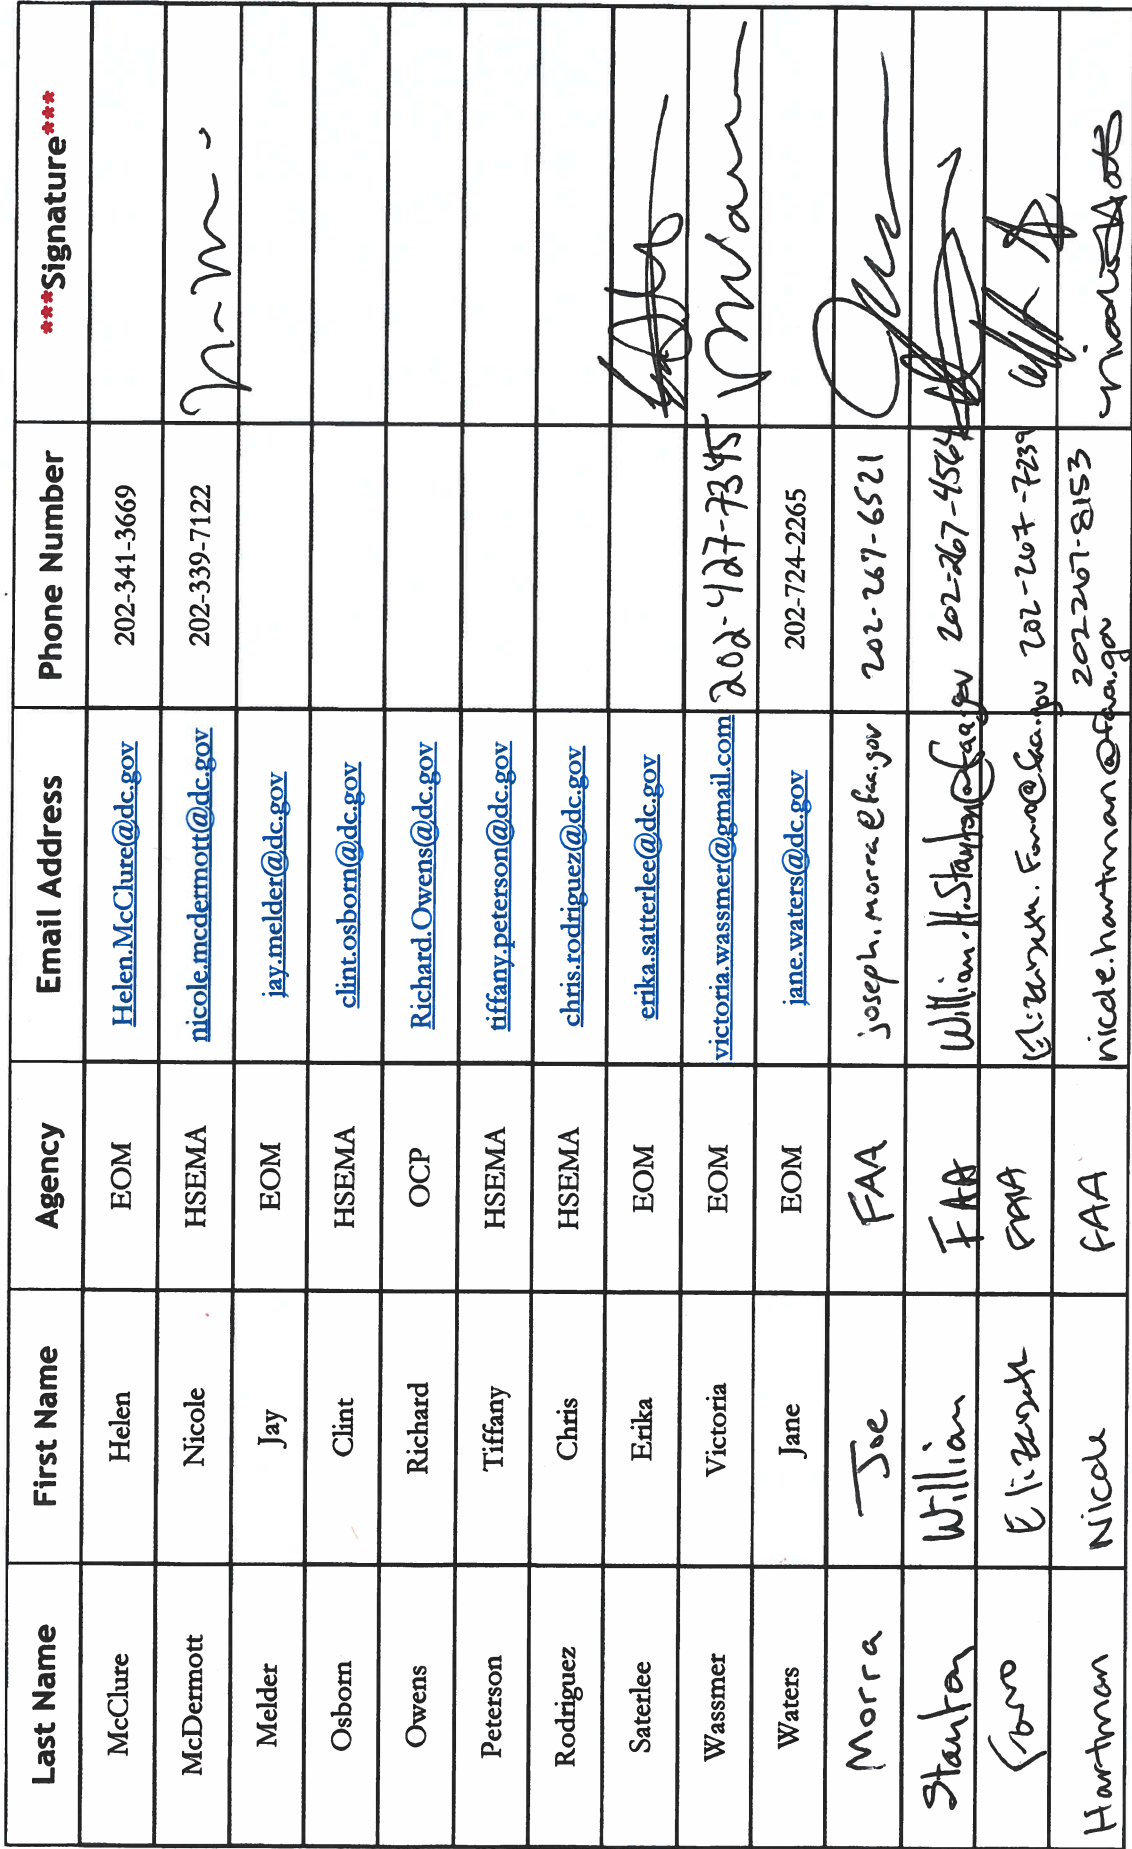 Last Name First Name Agency Email Address Phone Number ***Signature***
McClure Helen EOM Helen.McClure@dc.gov 202-341-3669
McDermott Nicole HSEMA nicole.mcdermott@dc.gov 202-339-7122
Melder Jay EOM jay.melder@dc.gov
Osborn Clint HSEMA clint.osborn@dc.gov
Owens Richard OCP Richard.Owens@dc.gov
Peterson Tiffany HSEMA tiffany.peterson@dc.gov
Rodriguez Chris HSEMA chris.rodriguez@dc.gov
Saterlee Erika EOM erika.satterlee@dc.gov
Wassmer Victoria EOM victoria.wassmer@gmail.com 202-427-7345
Waters Jane EOM jane.waters@dc.gov 202-724-2265
Morra Joe FAA joseph.morra@faa.gov 202-267-6521
Stanton William FAA William.H.Stanton@faa.gov 202-267-4564
Elizabeth FAA 202-267-7239
Hartman Nicole FAA nicole.hartman@faa.gov 202 267-8153